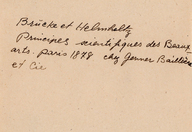 Brücke et Helmholtz
Principes scientifiques des Beaux-
arts. Paris 1878 chez Germer Baillière
et Cie